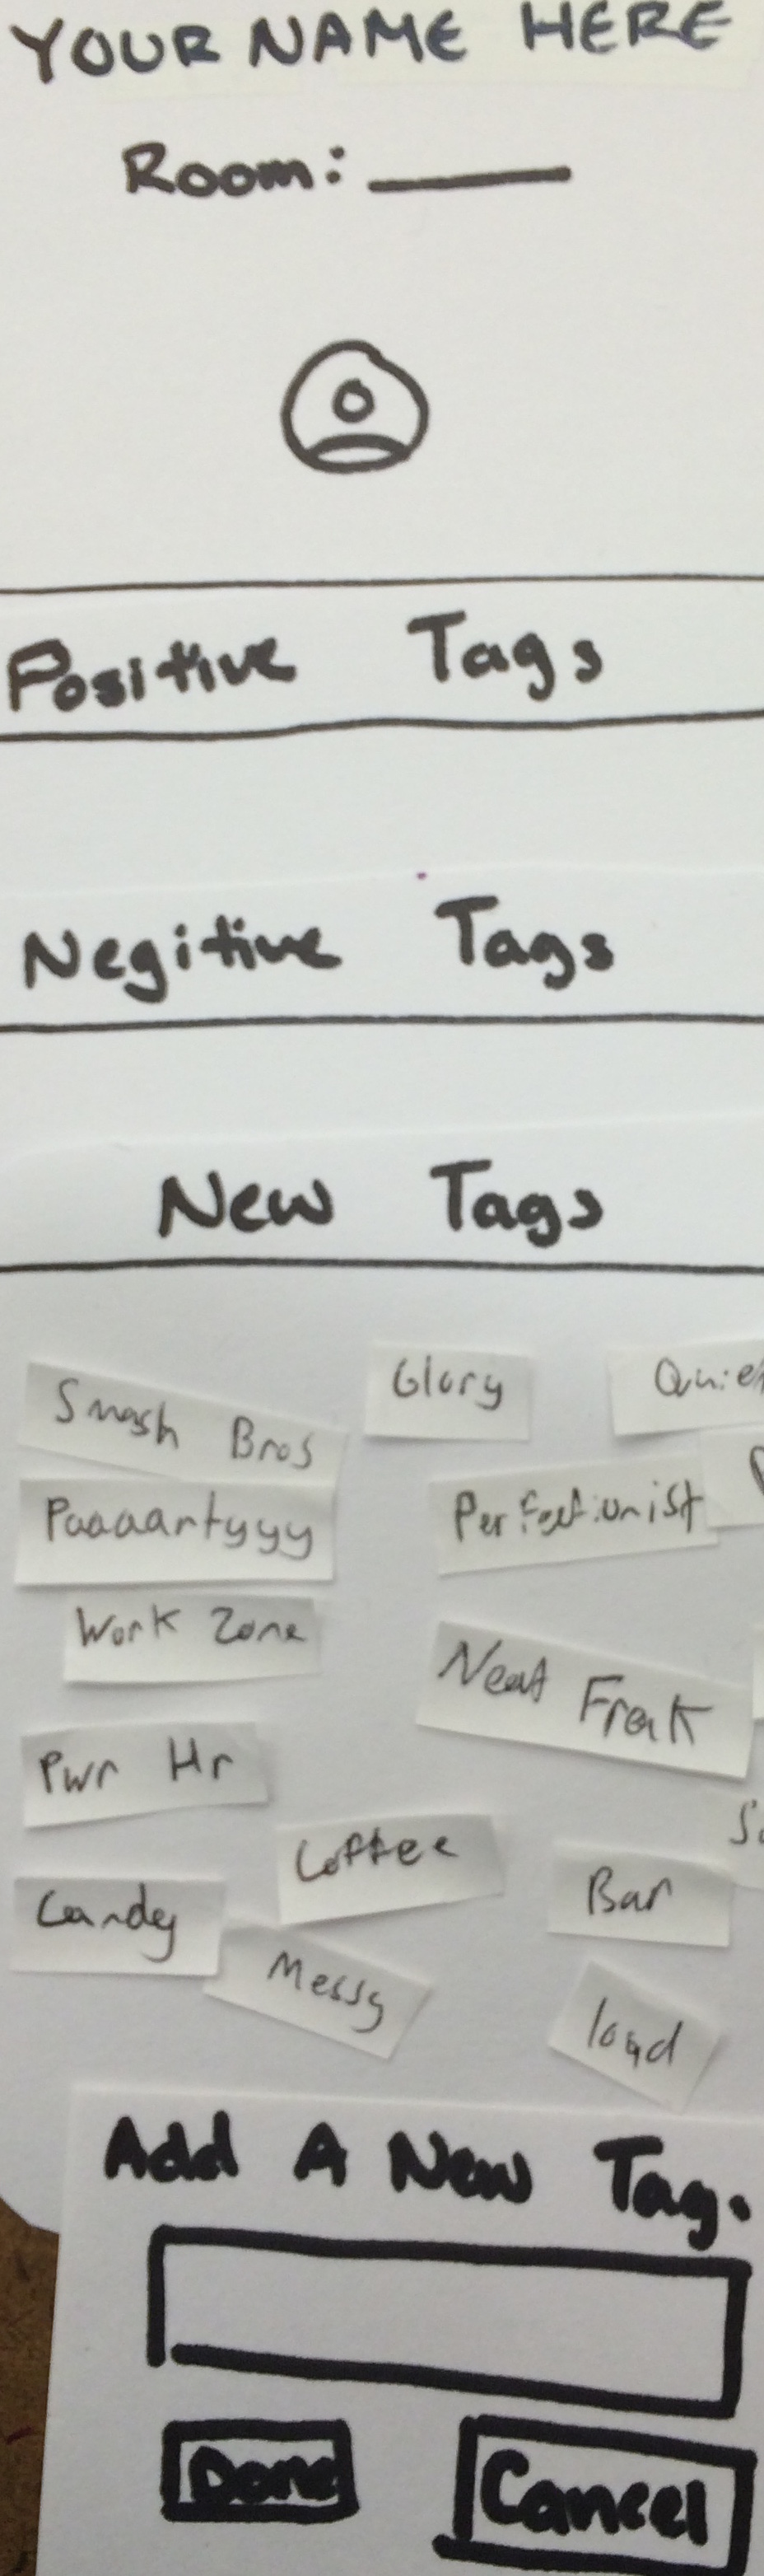 YOUR NAME HERE
Room: ____
Positive Tags
Negitive Tags
New Tags
Smash Bros
Glory
Quiet
Paaaartyyy
Perfectionist
Work Zone
Neat Freak
Pwr Hr
Coffee
Bar
Candy
Messy
loud
Add A New Tag.
Done
Cancel